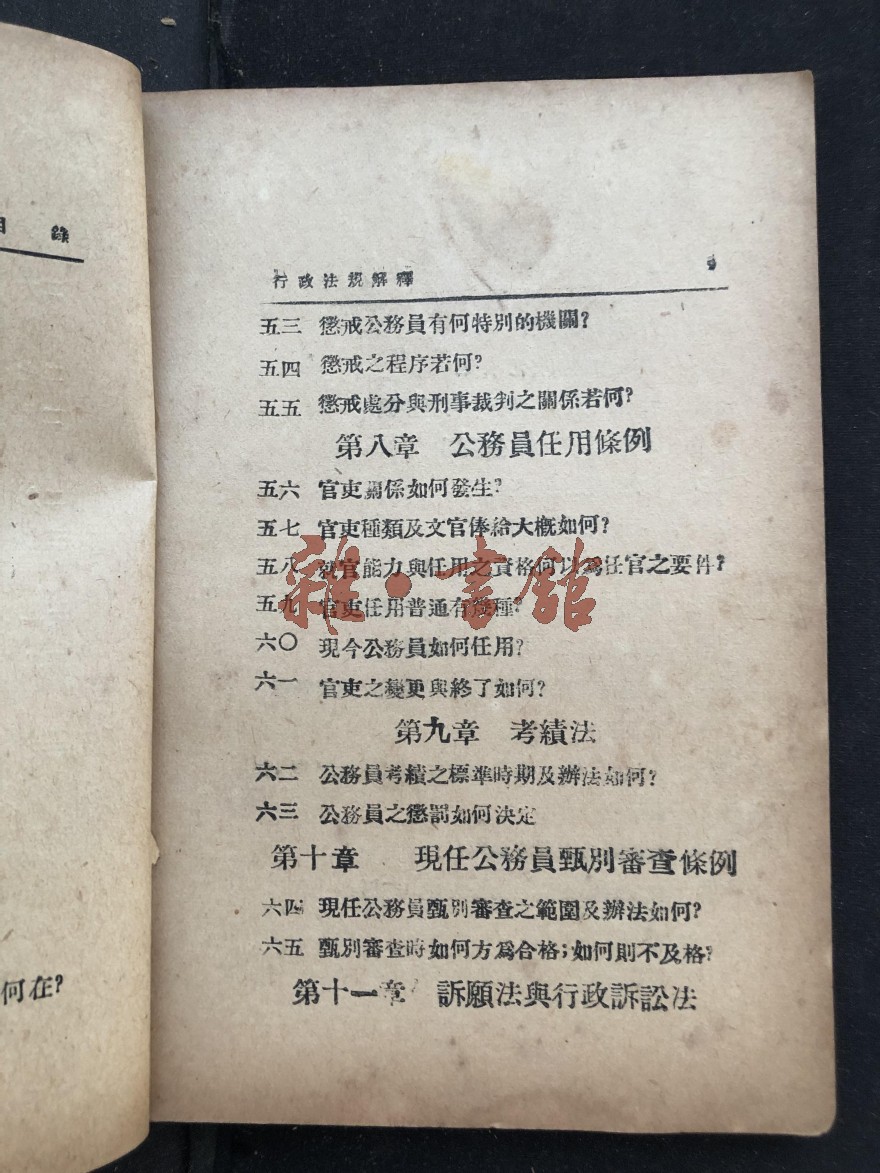 目錄
何在?
行政法規解釋
五三 懲戒公務員有何特別的機關?
五四 懲戒之程序若何?
五五 懲戒處分與刑事裁判之關係若何?
第八章 公務員任用條例
五六 官吏關係如何發生?
五七 官吏種類及文官俸給大概如何?
五八 就官能力與任用之資格何以爲任官之要件?
五九 官吏任用普通有幾種?
六〇 現今公務員如何任用?
六一 官吏之變更與終了如何?
第九章 考績法
六二 公務員考績之標準時期及辦法如何?
六三 公務員之懲罰如何決定
第十章 現任公務員甄別審查條例
六四 現任公務員甄別審查之範圍及辦法如何?
六五 甄別審查時如何方爲合格;如何則不及格?
第十一章 訴願法與行政訴訟法
雜·書館